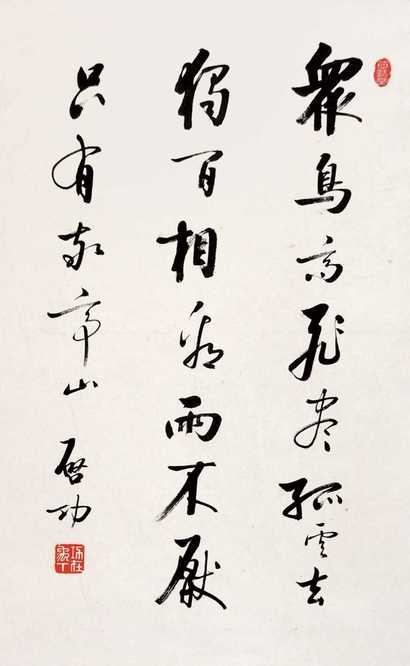 眾鳥高飛盡孤雲去
獨閒相看兩不厭
只有敬亭山 啓功